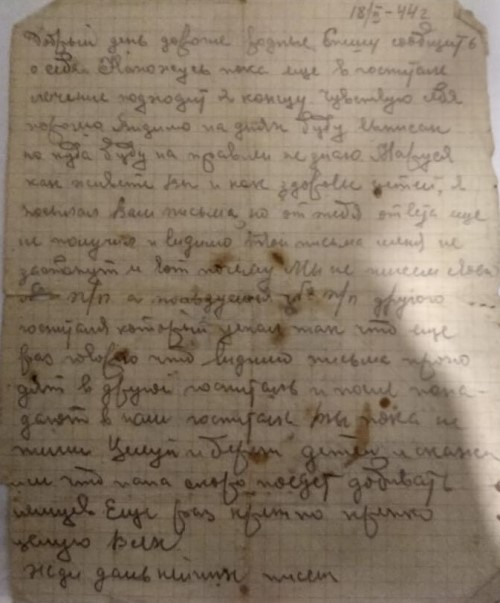 18/II-44г
Добрый день дорогие родные Спешу сообщить
о себе. Нахожусь пока еще в госпитале
лечение подходит к концу. Чувствую себя
хорошо Видимо на днях буду выписан
но куда буду на правлен не знаю Маруся
как живете вы и как здоровье детей, я
посылал Вам письма, но от тебя ответа еще
не получил и видимо Твои письма меня не
застанут и вот почему Мы не писем
п/п а п/п другого
госпиталя который так что еще
раз говорю что видимо письма прохо
дят в другой госпиталь и после попа-
дают в наш госпиталь ты пока не
пиши Целуй и береги детей и скажи
им что папа скоро поедет добивать
немцев Еще раз крепко крепко
целую Всех
Жди дальнейших писем